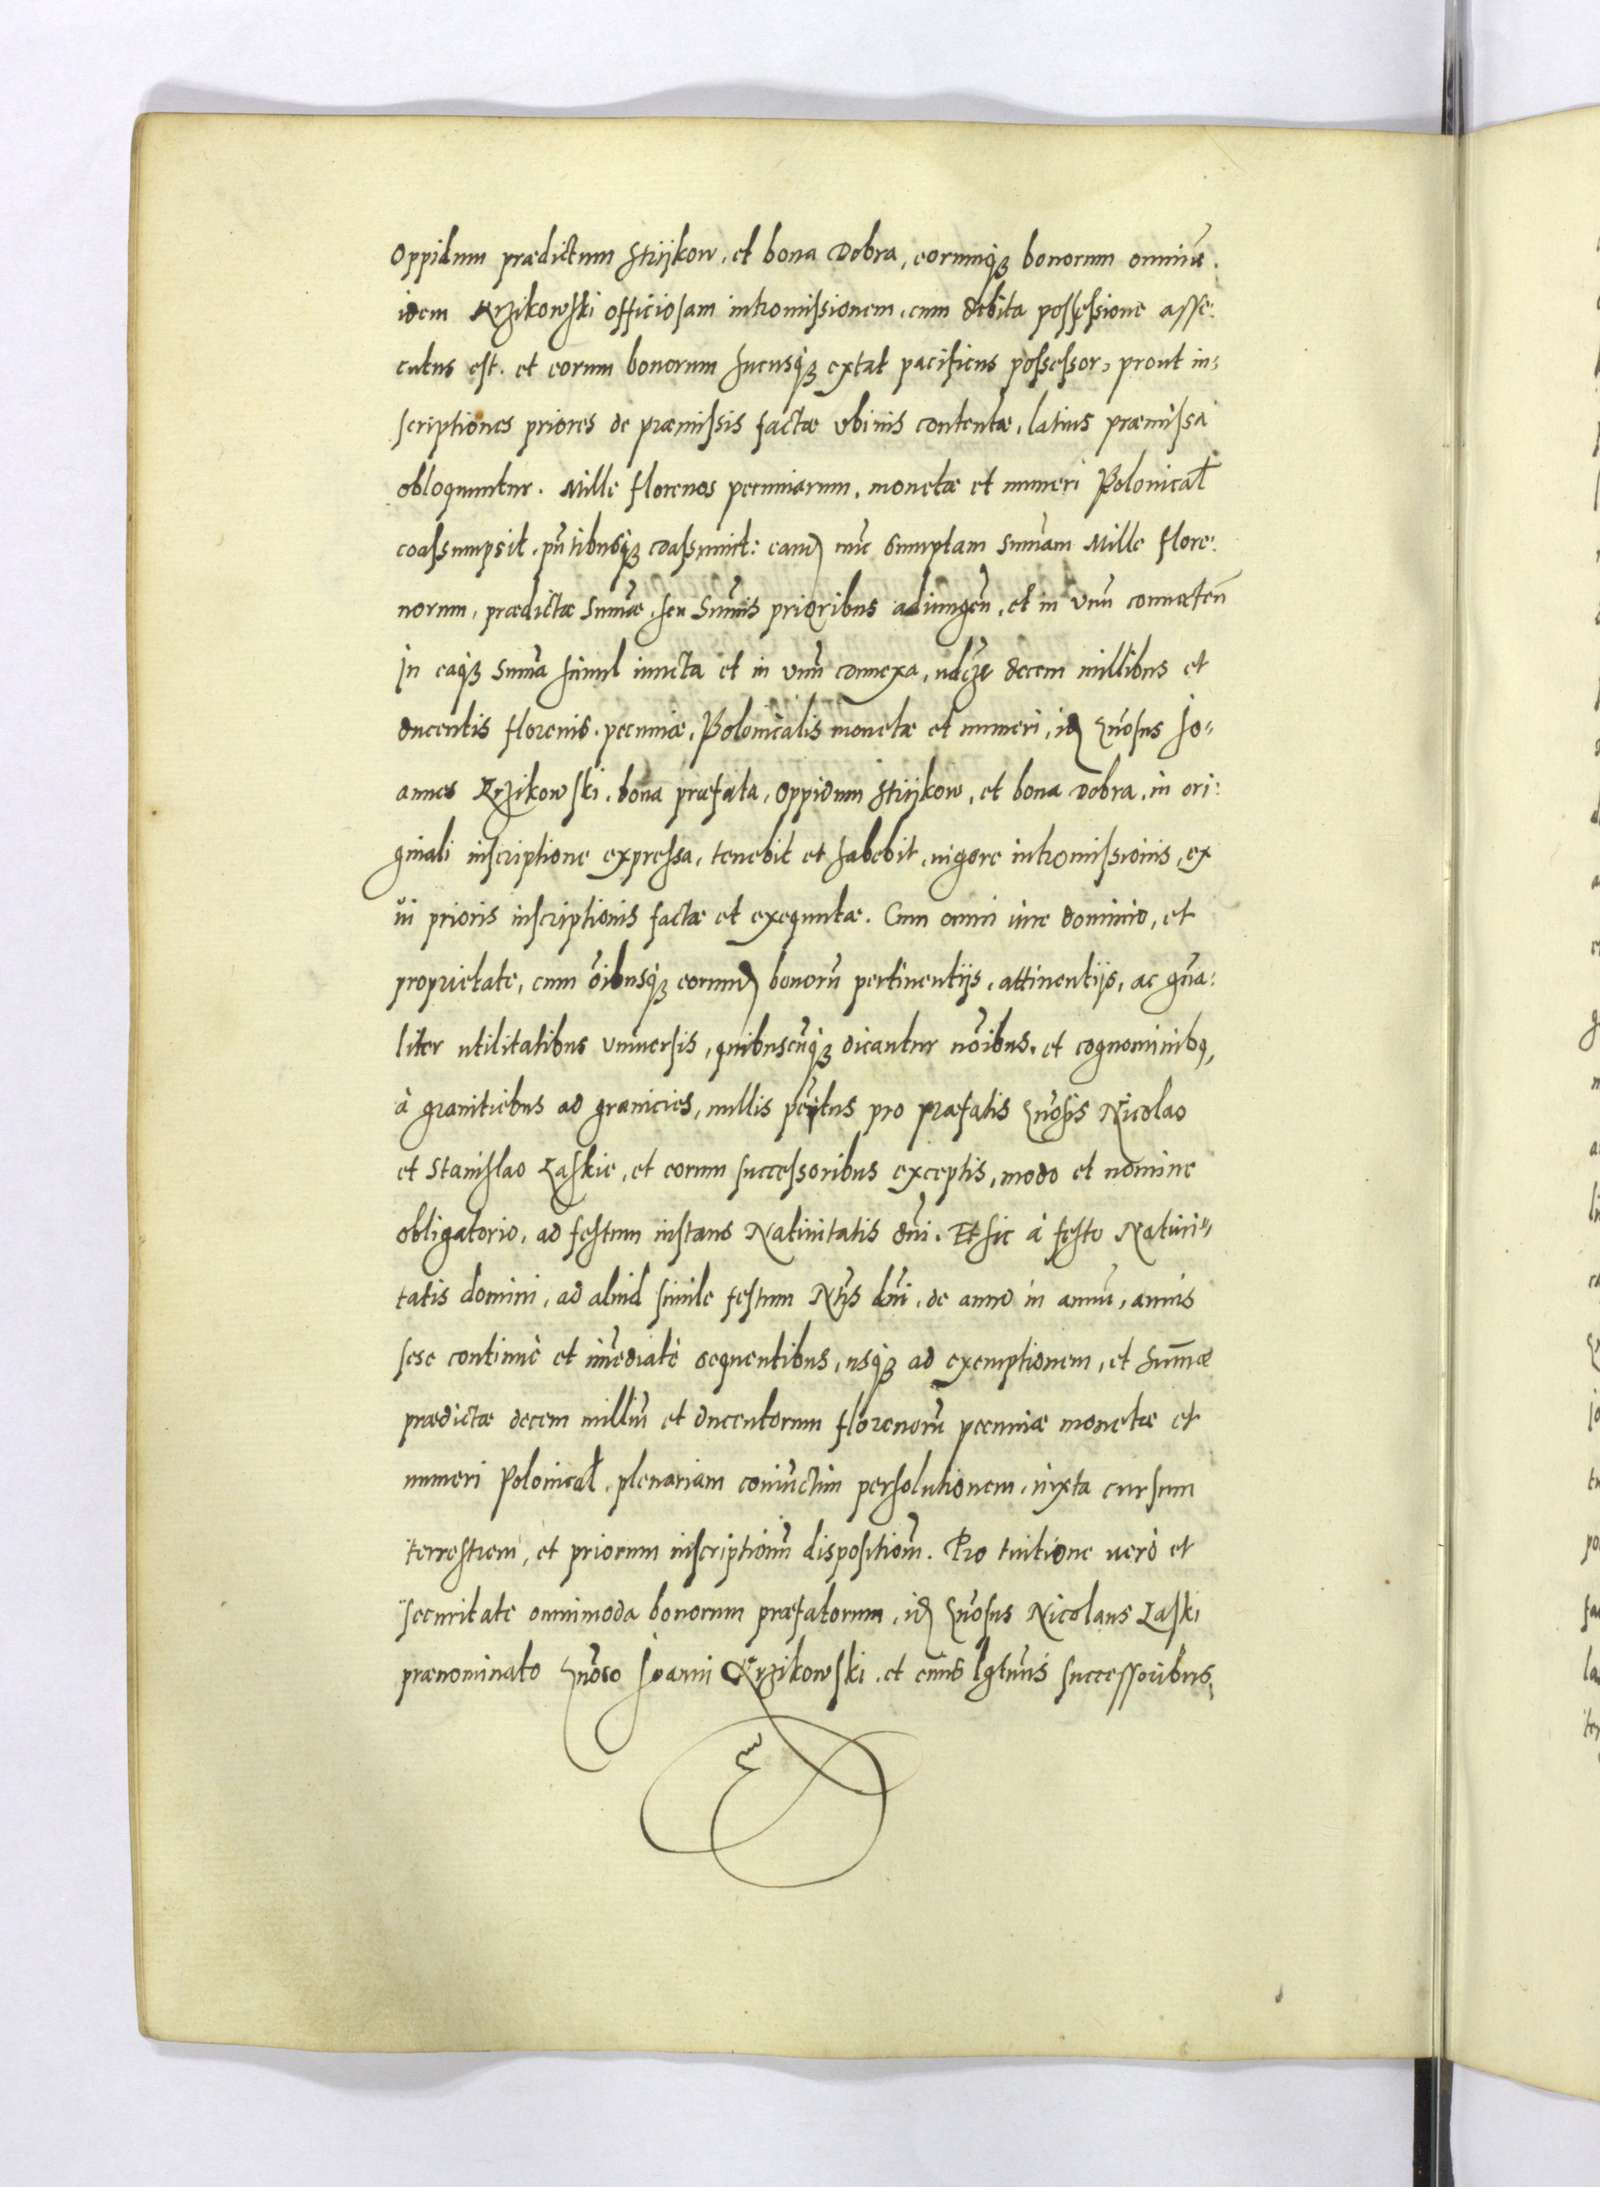 Oppidum prædictum Strijkow, et bona Dobra, eorumq₃ bonorum omniū.
idem Krzikowski officiosam intromissionem, cum debita possessione asse:
cutus est. et eorum bonorum hucusq₃ extat pacificus possessor, prout in:
scriptiones priores de præmissis factæ vbiuis contentæ, latius præmissa
obloquuntur. Mille florenos pecuniarum, monetæ et numeri Polonical
coassumpsit, pn̄tibusq₃ coassumit: eamq nūc sumptam sum̄am Mille flore:
norum, prædictæ sum̄æ, seu sum̄is prioribus adiungen̄, et in vnū connecten̄
In eaq₃ sum̄a simul iuncta et in vnū connexa, decem millibus et
ducentis florenis, pecuniæ, Polonicalis monetæ et numeri, id gn̄osus Jo:
annes Krzikowski, bona præfata, oppidum Strijkow, et bona Dobra, in ori:
ginali inscriptione expressa, tenebit et habebit, uigore intromissionis, ex
ui prioris inscriptionis factæ et exequutæ. Cum omni iure dominio, et
proprietate, cum oībusq₃ eorumd bonorū pertinentijs, attinentijs, ac gn̄a:
liter utilitatibus vniuersis, quibuscūq₃ dicantur noībus, et cognominibq,
à granitiebus ad granicies, nullis penitus pro præfatis gn̄osis Nicolao
et Stanislao Laskie, et eorum successoribus exceptis, modo et nomine
obligatorio, ad festum instans Natiuitatis dn̄i. Et sic à festo Natiui:
tatis domini, ad aliud simile festum Nt̄is dn̄i, de anno in annū, annis
sese continuè et im̄ediatè sequentibus, usq₃ ad exemptionem, et sum̄æ
prædictæ decem milliū et ducentorum florenorū pecuniæ monetæ et
numeri Polonical, plenariam coniūctim persolutionem, iuxta cursum
terrestrem, et priorum inscriptionū dispositiom̄. Pro tuitione uerò et
securitate omnimoda bonorum præfatorum, id gn̄osus Nicolaus Laski
prænominato gn̄oso Joanni Krzikowski, et eius lgtm̄is successoribus,